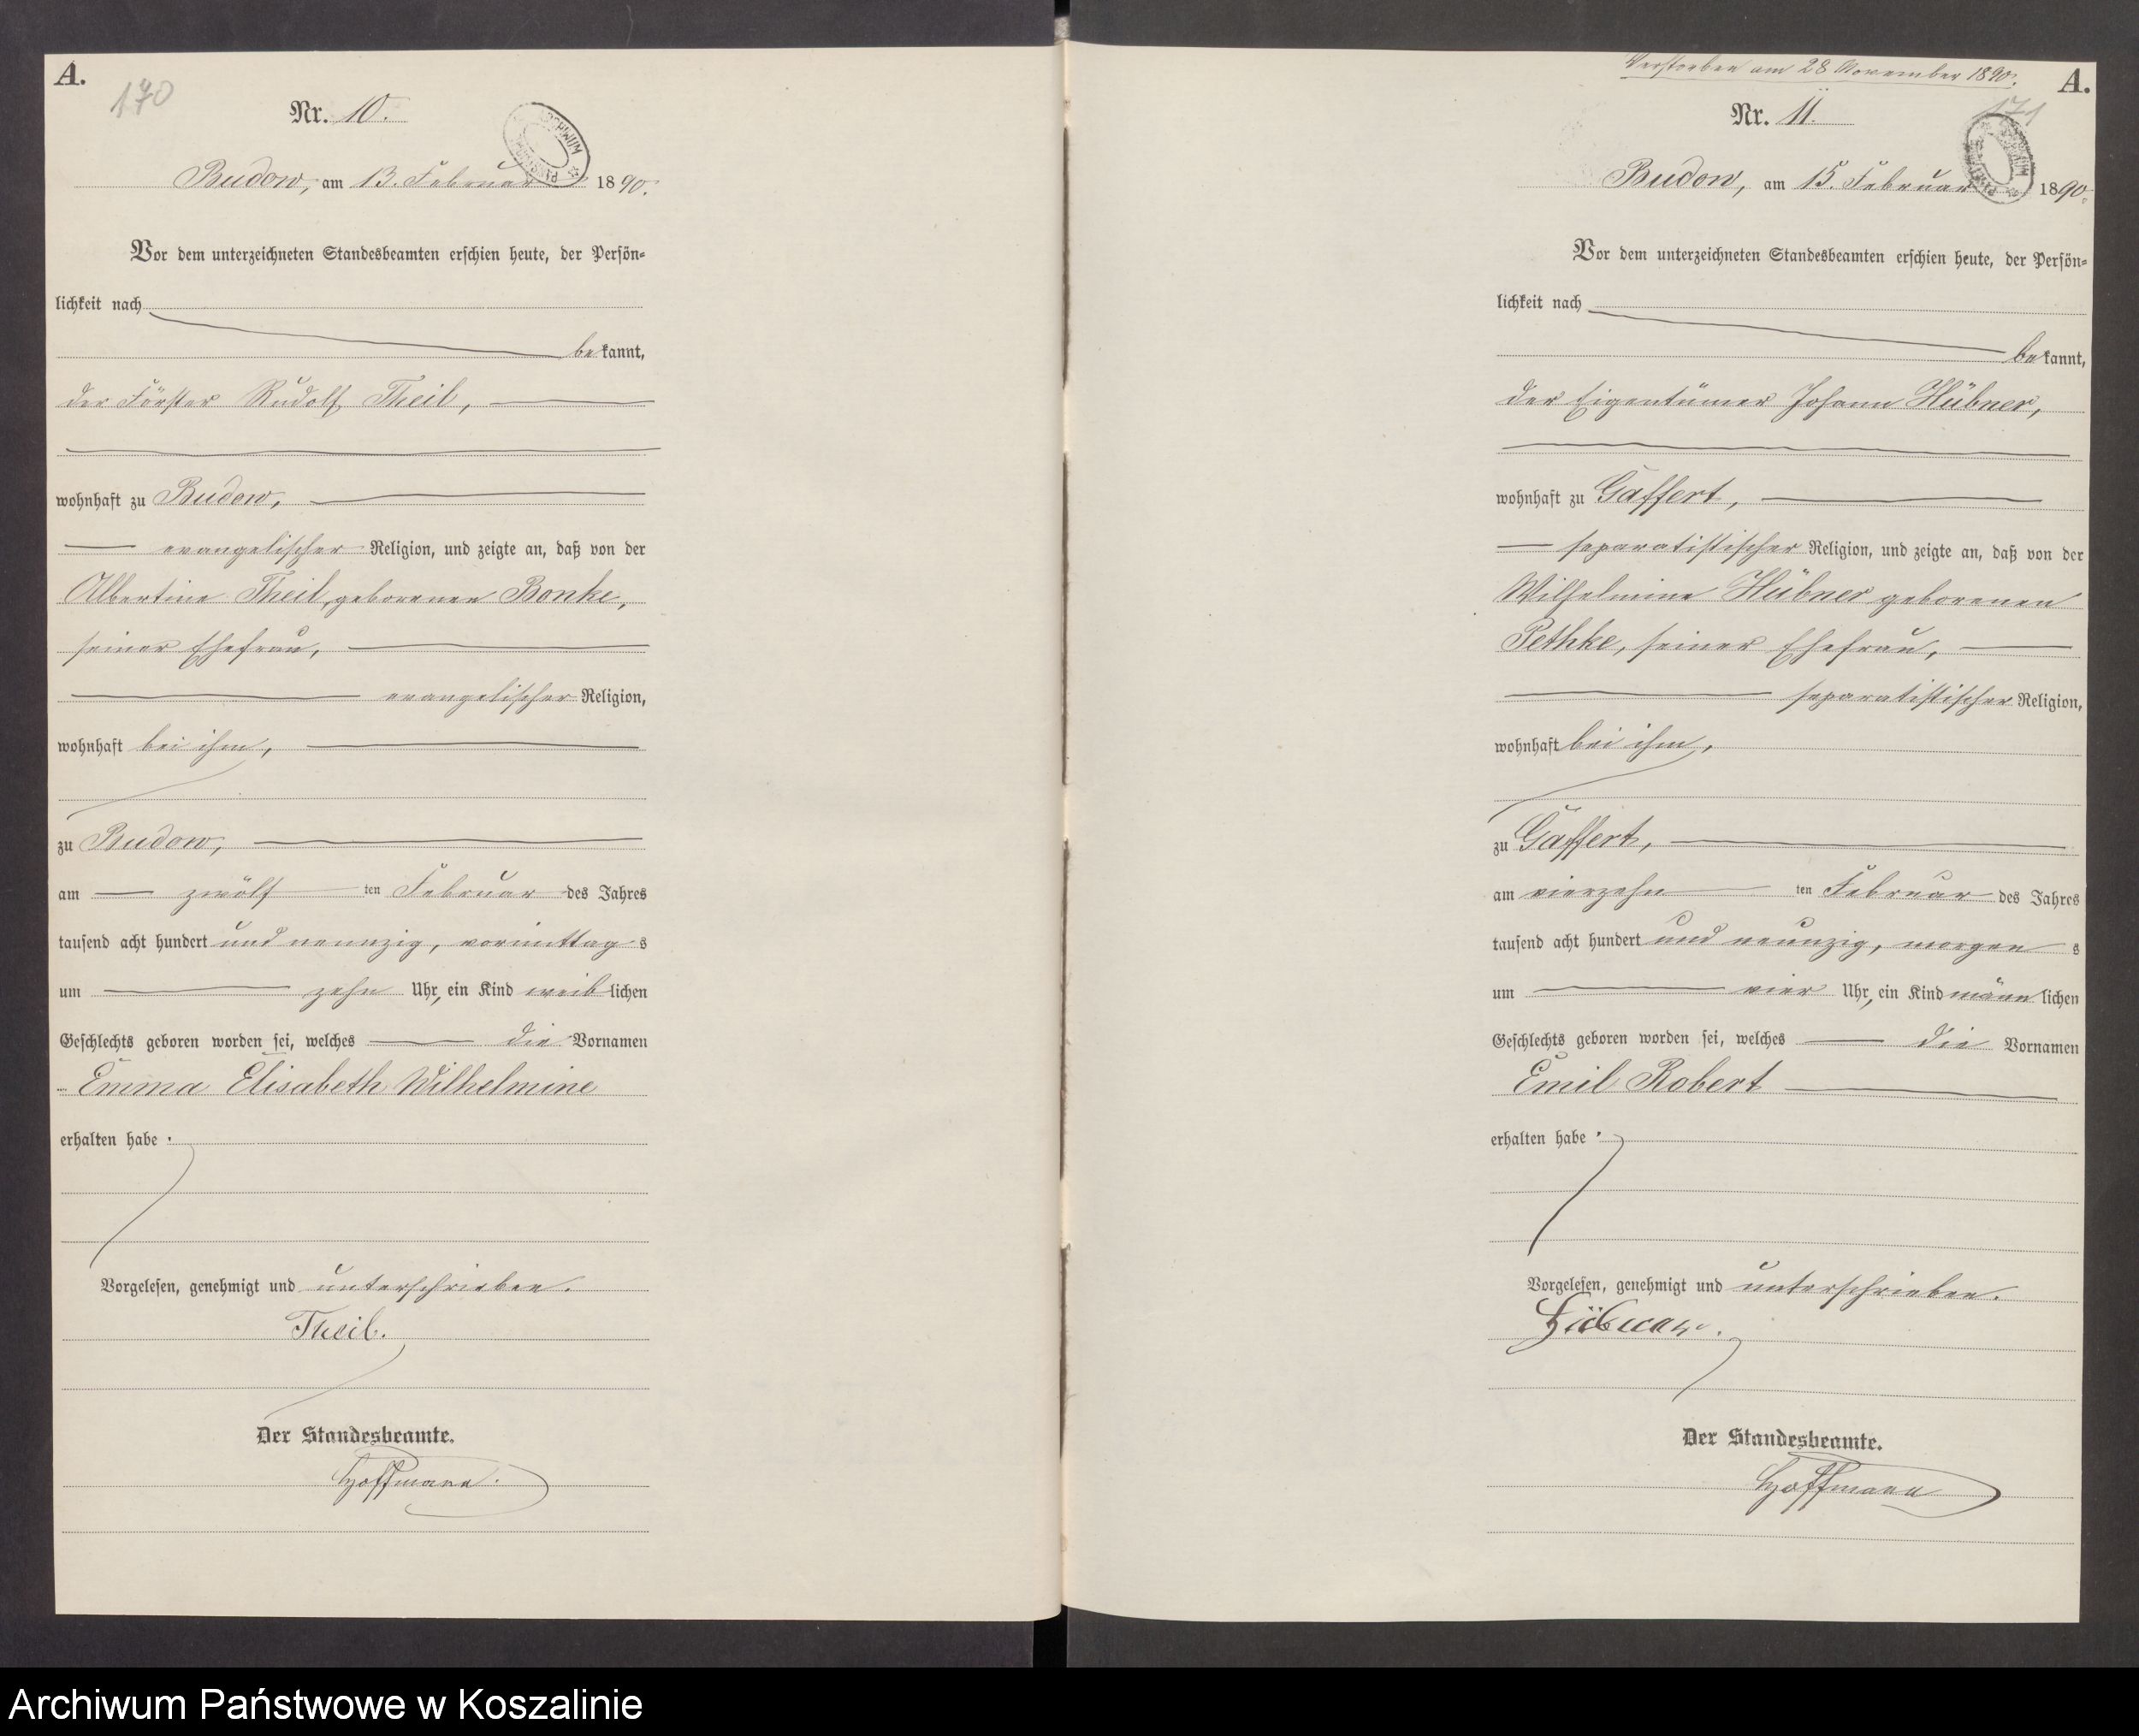 A.
170
Nr. 10.
Budow, am 13. Februar 1890.
Vor dem unterzeichneten Standesbeamten erschien heute, der Persön-
lichkeit nach
bekannt,
der Förster Rudolf Theil,
wohnhaft zu Budow,
evangelischer Religion, und zeigte an, daß von der
Albertine Theil, geborenen Bonke,
seiner Ehefrau,
evangelischer Religion,
wohnhaft bei ihm,
zu Budow,
am zwölf ten Februar des Jahres
tausend acht hundert und neunzig, vormittags
um zehn Uhr, ein Kind weiblichen
Geschlechts geboren worden sei, welches die Vornamen
Emma Elisabeth Wilhelmine
erhalten habe.
Vorgelesen, genehmigt und unterschrieben.
Theil.
Der Standesbeamte.
Hoffmann.
Verstorben am 28 November 1890.
A.
171
Nr. 11.
Budow, am 15. Februar 1890.
Vor dem unterzeichneten Standesbeamten erschien heute, der Persön-
lichkeit nach
bekannt,
der Eigentümer Johann Hübner,
wohnhaft zu Gaffert,
separatistischer Religion, und zeigte an, daß von der
Wilhelmine Hübner geborenen
Pethke, seiner Ehefrau,
separatistischer Religion,
wohnhaft bei ihm,
zu Gaffert,
am vierzehn ten Februar des Jahres
tausend acht hundert und neunzig, morgens
um vier Uhr, ein Kind männlichen
Geschlechts geboren worden sei, welches die Vornamen
Emil Robert
erhalten habe.
Vorgelesen, genehmigt und unterschrieben.
Hübner.
Der Standesbeamte.
Hoffmann
Archiwum Państwowe w Koszalinie